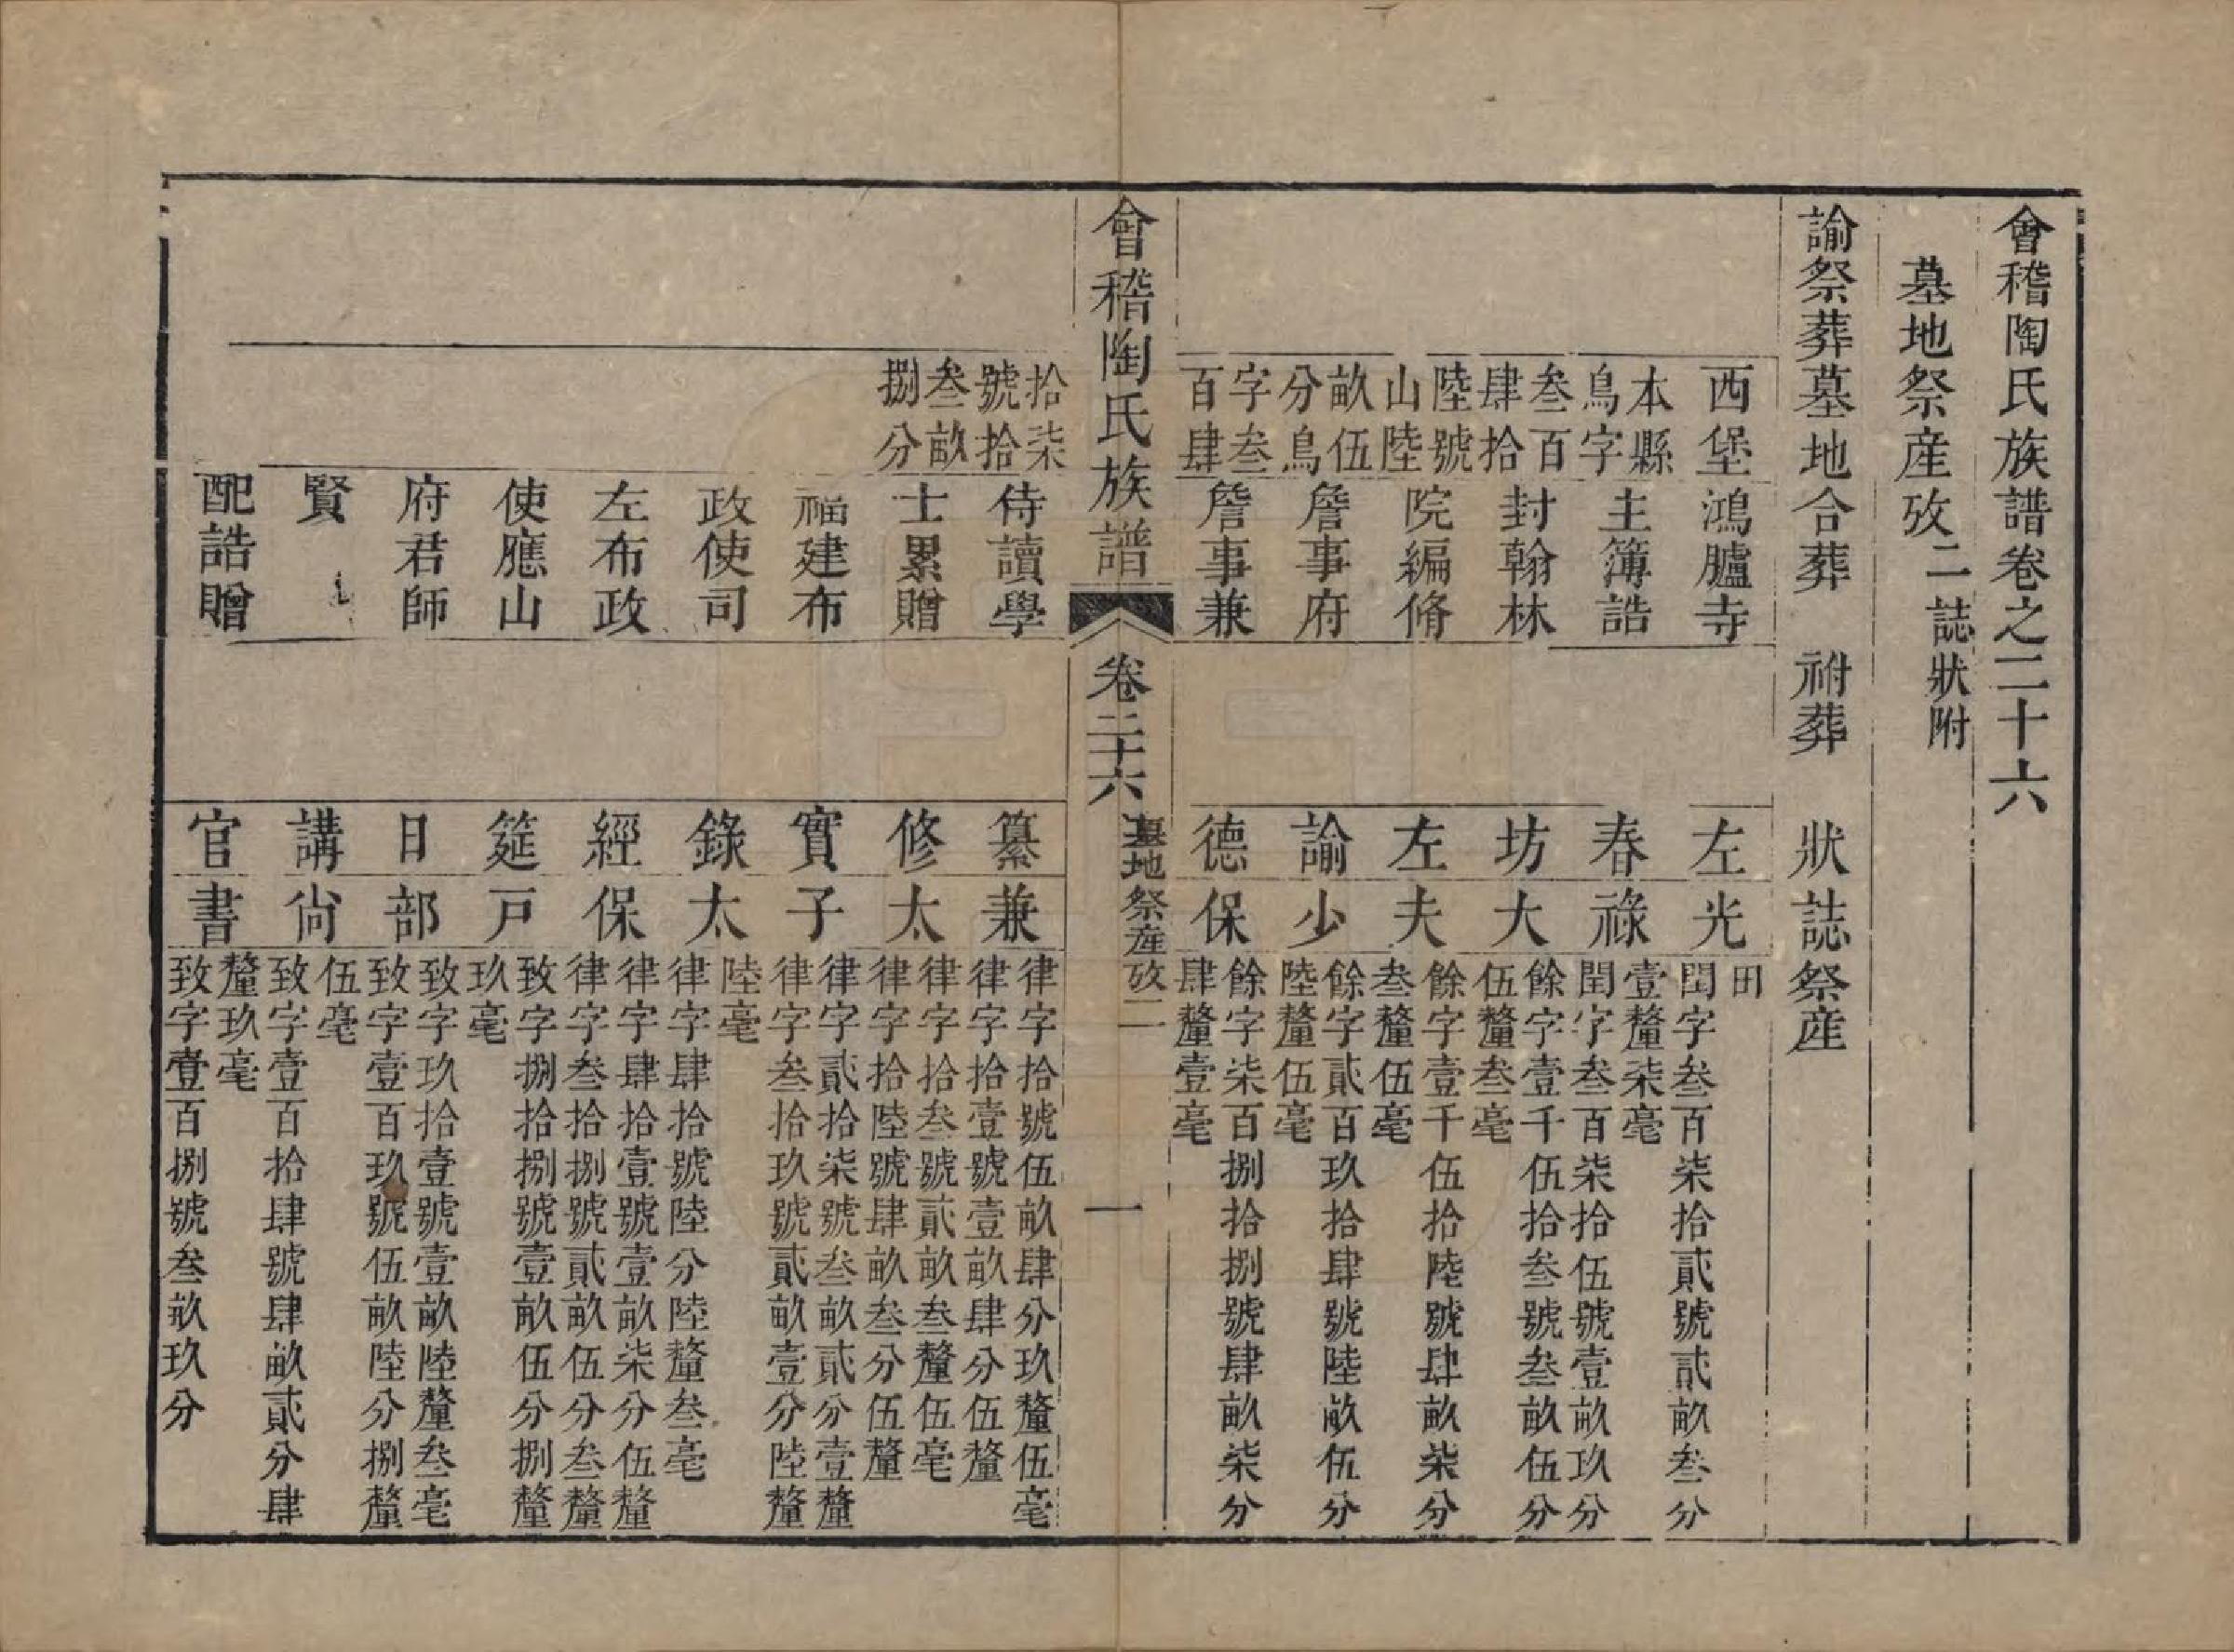 會稽陶氏族譜卷之二十六
墓地祭産攷二誌狀附
諭祭葬墓地合葬 祔葬 狀誌祭産
西堡
本縣
鳥字
叁百
肆拾
陸號
山陸
畝伍
分鳥
字叁
百肆
鴻臚寺
主簿誥
封翰林
院編脩
詹事府
詹事兼
左春坊左諭德
光祿大夫少保
田
閏字叁百柒拾貳號貳畝叁分
壹釐柒毫
閏字叁百柒拾伍號壹畝玖分
餘字壹千伍拾叁號叁畝伍分
伍釐叁毫
餘字壹千伍拾陸號肆畝柒分
叁釐伍毫
餘字貳百玖拾肆號陸畝伍分
陸釐伍毫
餘字柒百捌拾捌號肆畝柒分
肆釐壹毫
會稽陶氏族譜 卷二十六 墓地祭産攷二 一
拾柒
號拾
叁畝
捌分
侍讀學
士累贈
福建布
政使司
左布政
使應山
府君師
賢
配誥贈
纂修實錄經筵日講官
兼太子太保戸部尙書
律字拾號伍畝肆分玖釐伍毫
律字拾壹號壹畝肆分伍釐
律字拾叁號貳畝叁釐伍毫
律字拾陸號肆畝叁分伍釐
律字貳拾柒號叁畝貳分壹釐
律字叁拾玖號貳畝壹分陸釐
陸毫
律字肆拾號陸分陸釐叁毫
律字肆拾壹號壹畝柒分伍釐
律字叁拾捌號貳畝伍分叁釐
致字捌拾捌號壹畝伍分捌釐
玖毫
致字玖拾壹號壹畝陸釐叁毫
致字壹百玖號伍畝陸分捌釐
伍毫
致字壹百拾肆號肆畝貳分肆
釐玖毫
致字壹百捌號叁畝玖分